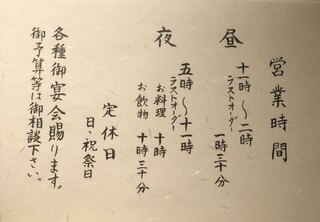 営業時間
昼
十一時〜二時
ラストオーダー
一時三十分
夜
五時〜十一時
ラストオーダー
お料理 十時
お飲物 十時三十分
定休日
日、祝祭日
各種御宴会賜ります。
御予算等は御相談下さい。